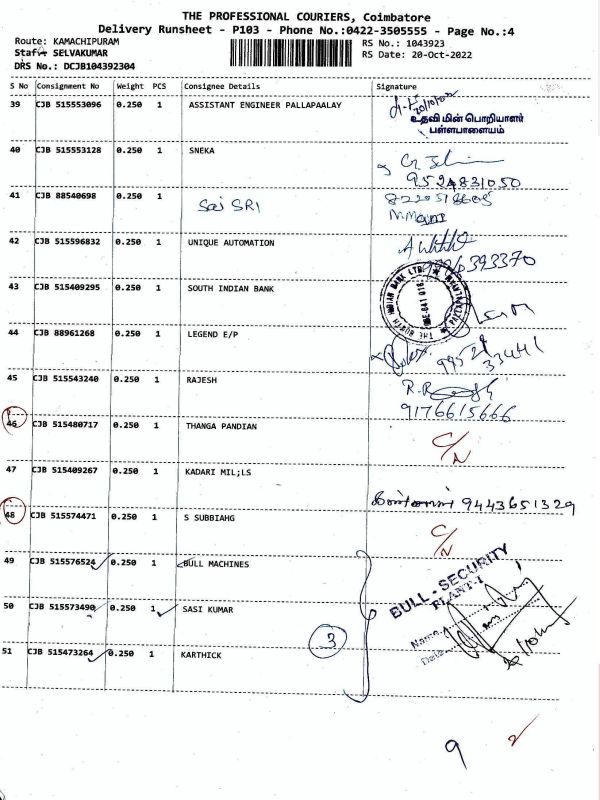 THE PROFESSIONAL COURIERS, Coimbatore
Delivery Runsheet - P103 - Phone No.:0422-3505555 - Page No.:4
Route: KAMACHIPURAM
RS No.: 1043923
Staff: SELVAKUMAR
RS Date: 20-Oct-2022
DRS No.: DCJB104392304
S No Consignment No Weight PCS Consignee Details Signature
39 CJB 515553096 0.250 1 ASSISTANT ENGINEER PALLAPAALAY
உதவி மின் பொறியாளர்
பள்ளபாளையம்
40 CJB 515553128 0.250 1 SNEKA
9524831050
41 CJB 88540698 0.250 1 Sai SRI
42 CJB 515596832 0.250 1 UNIQUE AUTOMATION
43 CJB 515409295 0.250 1 SOUTH INDIAN BANK
44 CJB 88961268 0.250 1 LEGEND E/P
45 CJB 515543240 0.250 1 RAJESH
9176615666
46 CJB 515480717 0.250 1 THANGA PANDIAN C/N
47 CJB 515409267 0.250 1 KADARI MIL;LS
9443651329
48 CJB 515574471 0.250 1 S SUBBIAHG C/N
49 CJB 515576524 0.250 1 BULL MACHINES
BULL - SECURITY
PLANT-1
50 CJB 515573490 0.250 1 SASI KUMAR
Name
Date
3
51 CJB 515473264 0.250 1 KARTHICK
9 2